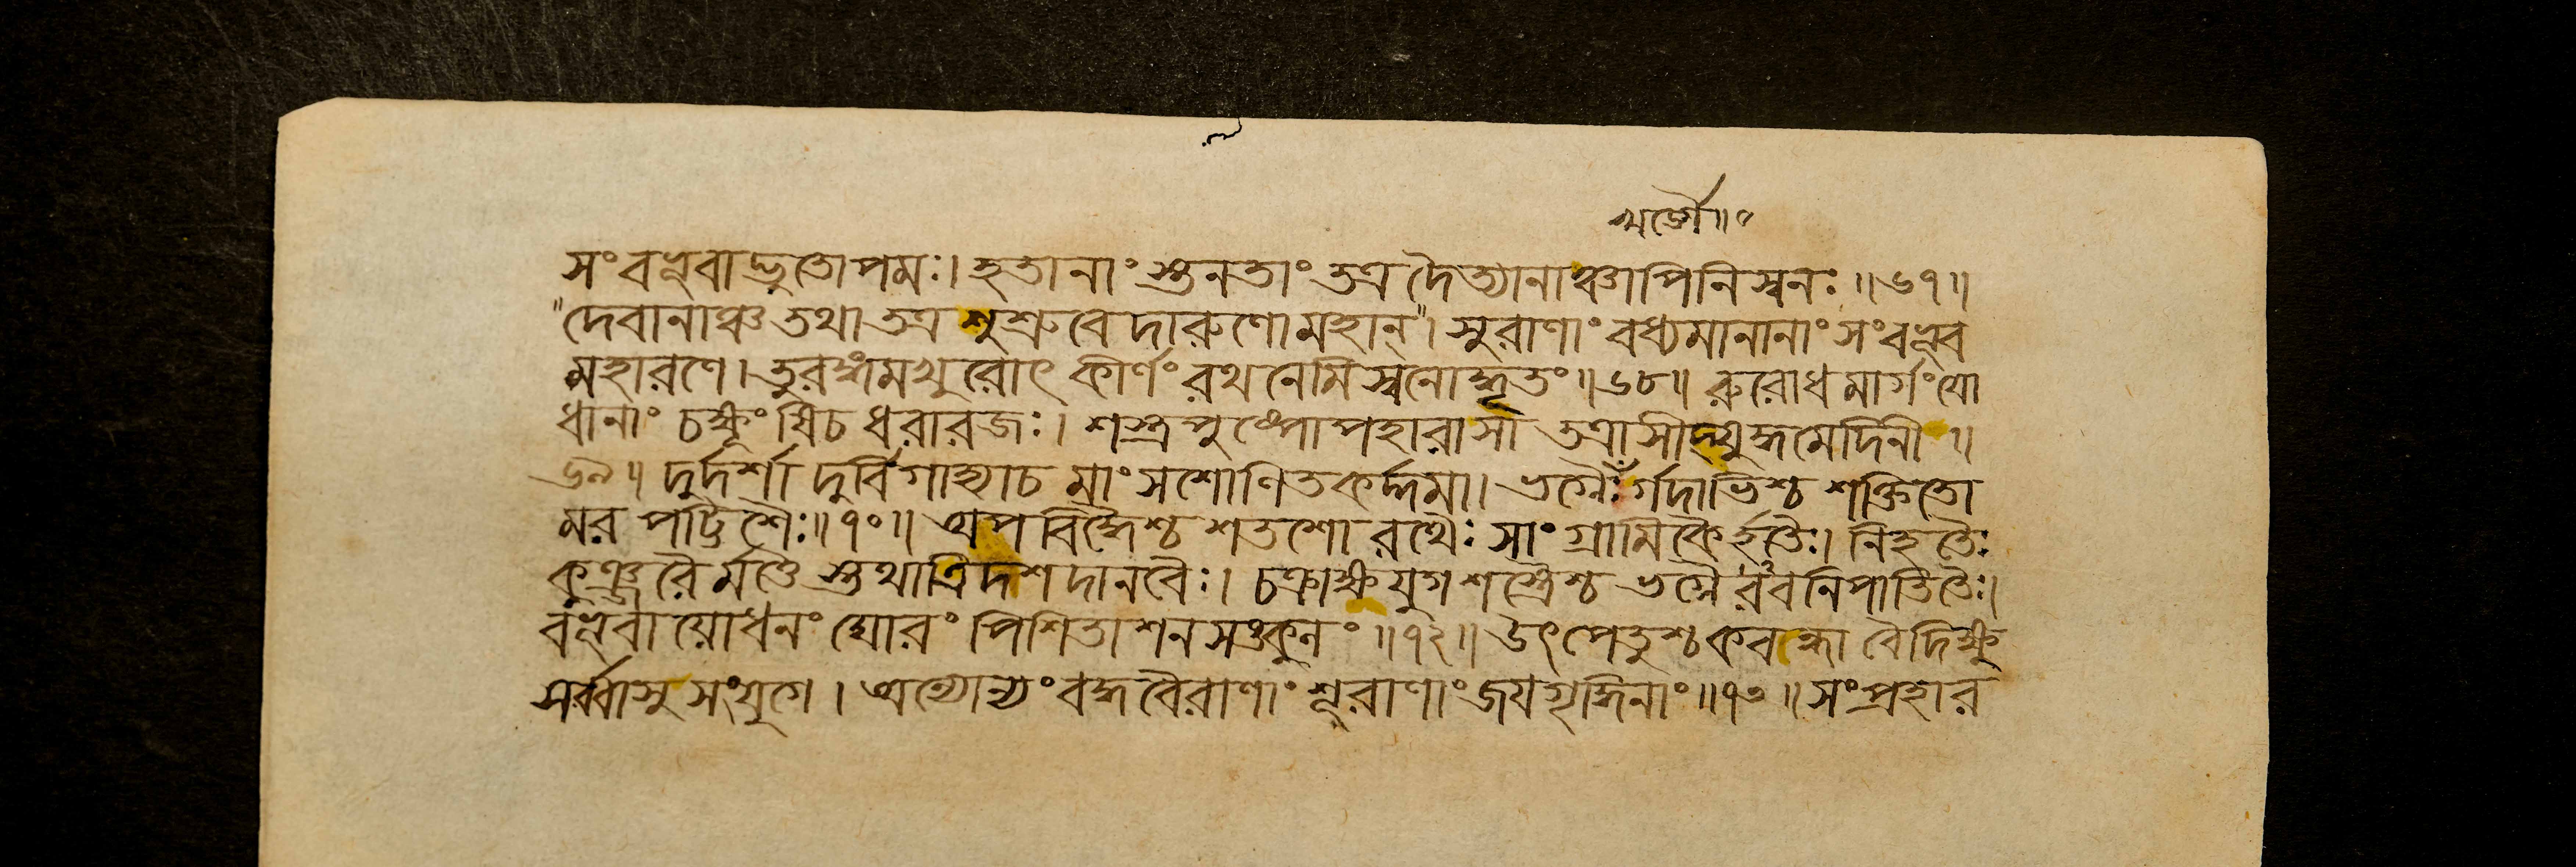 সংবভূবাদ্ভুতোপমঃ। হতানাং স্তনতাং তত্র দৈত্যানাঞ্চাপিনিস্বনঃ ॥৬৭॥
"দেবানাঞ্চ তথা তত্র শুশ্রুবে দারুণো মহান্"। সুরাণাং বধ্যমানানাং সংবভূব
মহারণে। তুরঙ্গমখুরোৎ কীর্ণং রথনেমিস্বনোদ্ধৃতং ॥৬৮॥ রুরোধ মার্গং যো
ধানাং চক্ষূংষিচ ধরারজঃ। শস্ত্রপুষ্পোপহারাসা তত্রাসীদ্যুদ্ধমেদিনী ॥
৬৯॥ দুর্দর্শা দুর্বিগাহ্যাচ মাংসশোণিতকর্দ্দমা। ভগ্নৈঃর্গদাভিশ্চ শক্তিতো
মর পট্টিশৈঃ॥৭০॥ অপবিদ্ধৈশ্চ শতশো রথৈঃ সাংগ্রামিকৈর্হতৈঃ। নিহতৈঃ
কুঞ্জরৈর্মত্তৈ স্তথাত্রিদশদানবৈঃ। চক্রাক্ষযুগশস্ত্রৈশ্চ ভগ্নৈরবনিপাতিতৈঃ।
বভূবায়োধনং ঘোরং পিশিতাশনসঙ্কুলং ॥৭২॥ উৎপেতুশ্চ কবন্ধা বৈ দিক্ষু
সর্ব্বাসু সংযুগে। অন্যোন্যং বদ্ধবৈরাণাং শূরাণাং জয়গৃদ্ধিনাং ॥৭৩॥ সংপ্রহার